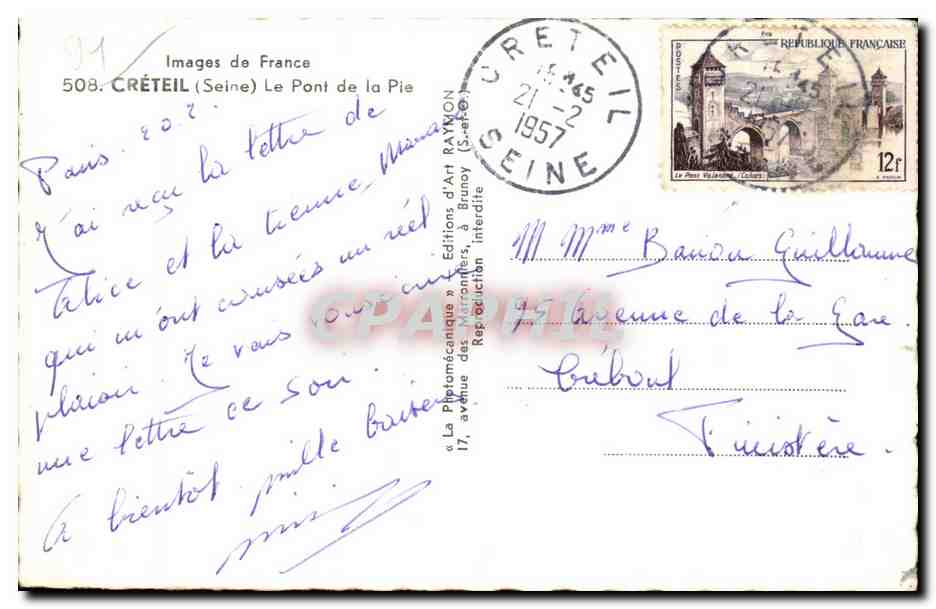 91
Images de France
508. CRÉTEIL (Seine) Le Pont de la Pie
Paris. 20.2.
J'ai reçu la lettre de
Alice et la tienne, Maman
qui m'ont causées un réel
plaisir. Je vous
une lettre ce soir.
A bientôt mille baisers
« La Photomécanique » Editions d'Art RAYMON
17, avenue des Marronniers, à Brunoy (S.-et-O.)
Reproduction interdite
CRETEIL
45
21-2
1957
SEINE
REPUBLIQUE FRANÇAISE
POSTES
12f
Le Pont Valentré (Cahors)
M Mme Banon Guillaume
75 Avenue de la Gare.
Tréboul
Finistère.
CPAPHIL